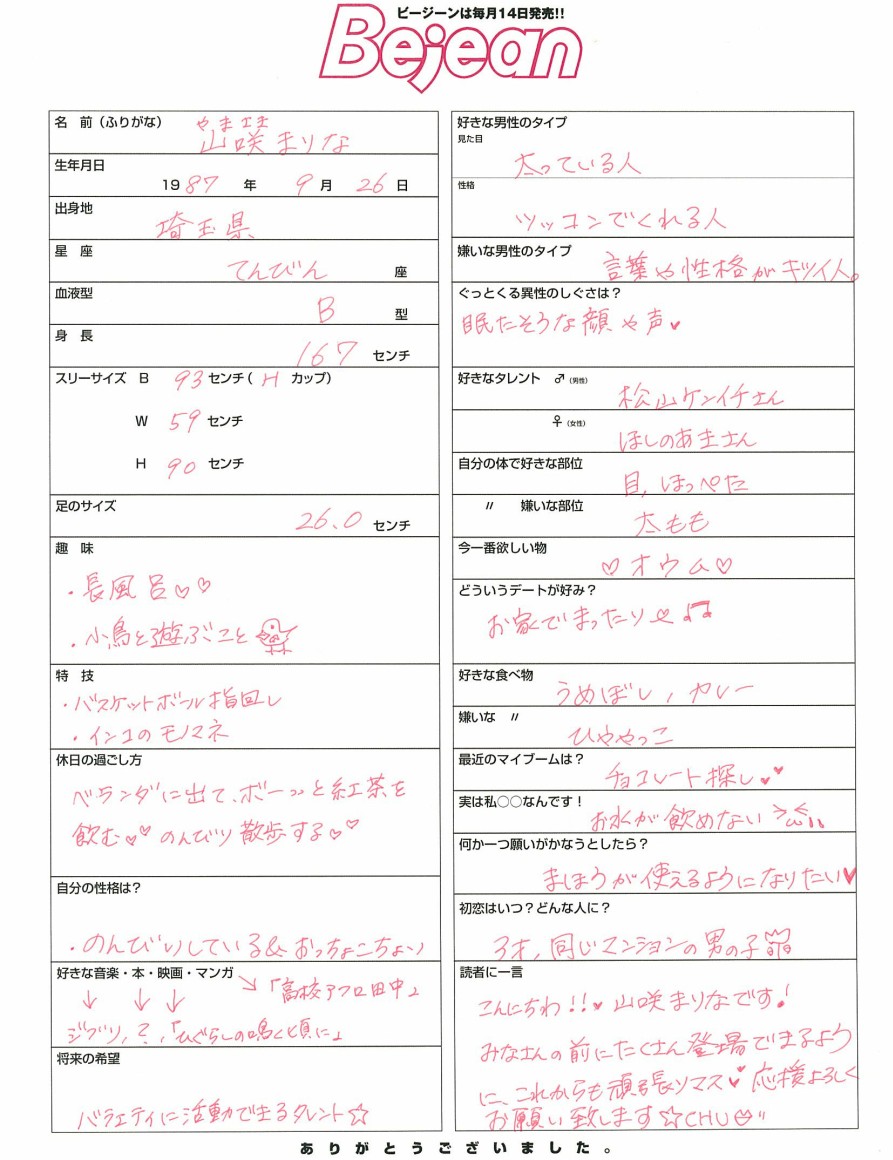 ビージーンは毎月14日発売!!
Bejean
名 前（ふりがな） やまさき
山咲 まりな
生年月日
1987 年 9 月 26 日
出身地
埼玉県
星 座
てんびん 座
血液型
B 型
身 長
167 センチ
スリーサイズ B 93 センチ（ H カップ）
W 59 センチ
H 90 センチ
足のサイズ
26.0 センチ
趣 味
・長風呂♡♡
・小鳥と遊ぶこと
特 技
・バスケットボール指回し
・インコのモノマネ
休日の過ごし方
ベランダに出て、ボーっと紅茶を
飲む♡♡ のんびり散歩する♡♡
自分の性格は？
・のんびりしている&おっちょこちょい
好きな音楽・本・映画・マンガ
↓ ↓ ↓ ↘「高校アフロ田中」
ジブリ，？，「ひぐらしの鳴く頃に」
将来の希望
バラエティに活動できるタレント☆
好きな男性のタイプ
見た目
太っている人
性格
ツッコンでくれる人
嫌いな男性のタイプ
言葉や性格がキツイ人。
ぐっとくる異性のしぐさは？
眠たそうな顔や声♥
好きなタレント ♂（男性）
松山ケンイチさん
♀（女性）
ほしのあきさん
自分の体で好きな部位
目，ほっぺた
〃 嫌いな部位
太もも
今一番欲しい物
♡オウム♡
どういうデートが好み？
お家でまったり♡♫
好きな食べ物
うめぼし，カレー
嫌いな 〃
ひややっこ
最近のマイブームは？
チョコレート探し♥♥
実は私○○なんです！
お水が飲めない
何か一つ願いがかなうとしたら？
まほうが使えるようになりたい♥
初恋はいつ？どんな人に？
3才，同じマンションの男の子
読者に一言
こんにちわ!!♥山咲まりなです！
みなさんの前にたくさん登場できるよう
に、これからも頑張リマス♥応援よろしく
お願い致します☆CHU♡"
ありがとうございました。